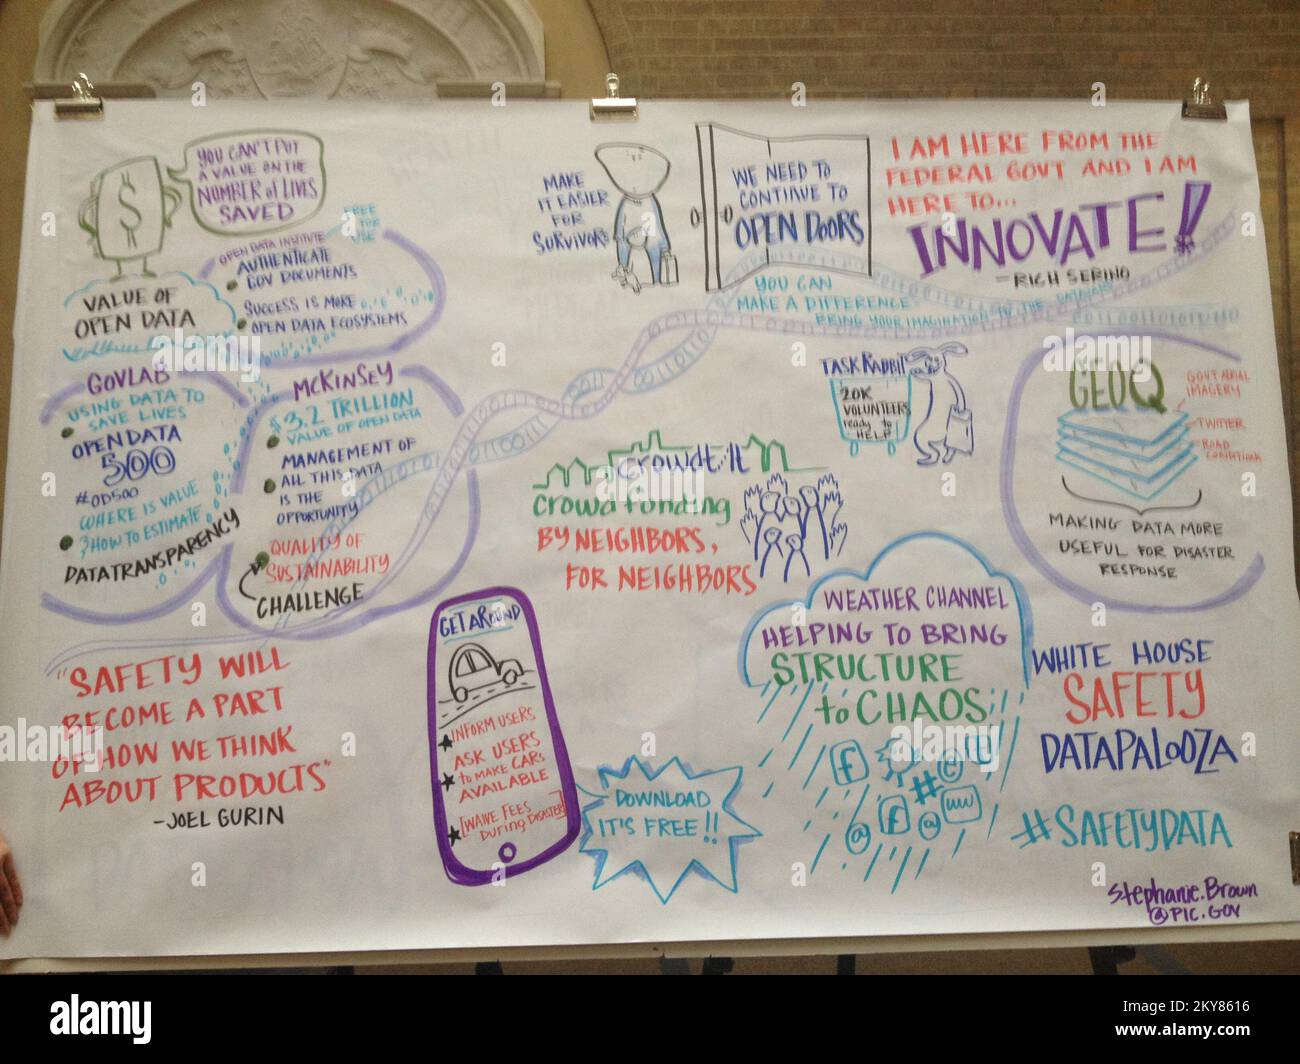 YOU CAN'T PUT
A VALUE ON THE
NUMBER of LIVES
SAVED
$
VALUE OF
OPEN DATA
OPEN DATA INSTITUTE
FREE
FOR
USE
AUTHENTICATE
GOV DOCUMENTS
SUCCESS IS MORE
OPEN DATA ECOSYSTEMS
GOVLAB
USING DATA TO
SAVE LIVES
OPEN DATA
500
#OD500
WHERE IS VALUE
? HOW TO ESTIMATE
DATA TRANSPARENCY
McKINSEY
$3.2 TRILLION
VALUE OF OPEN DATA
MANAGEMENT OF
ALL THIS DATA
IS THE
OPPORTUNITY
QUALITY OF
SUSTAINABILITY
CHALLENGE
"SAFETY WILL
BECOME A PART
OF HOW WE THINK
ABOUT PRODUCTS"
-JOEL GURIN
MAKE
IT EASIER
FOR
SURVIVORS
WE NEED TO
CONTINUE TO
OPEN DOORS
I AM HERE FROM THE
FEDERAL GOVT AND I AM
HERE TO...
INNOVATE!
-RICH SERINO
YOU CAN
MAKE A DIFFERENCE
BRING YOUR IMAGINATION TO THE DATAJAM
TASK RABBIT
20K
VOLUNTEERS
ready to
HELP
CROWDTILT
crowd funding
BY NEIGHBORS,
FOR NEIGHBORS
GEOQ
GOVT AERIAL
IMAGERY
TWITTER
ROAD
CONDITIONS
MAKING DATA MORE
USEFUL FOR DISASTER
RESPONSE
GETAROUND
INFORM USERS
ASK USERS
to MAKE CARS
AVAILABLE
[WAIVE FEES
During DISASTER]
DOWNLOAD
IT'S FREE!!
WEATHER CHANNEL
HELPING TO BRING
STRUCTURE
to CHAOS
f
#
@
f
@
www
WHITE HOUSE
SAFETY
DATAPALOOZA
#SAFETYDATA
Stephanie.Brown
@PIC.GOV
alamy
Image ID: 2KY8616
www.alamy.com